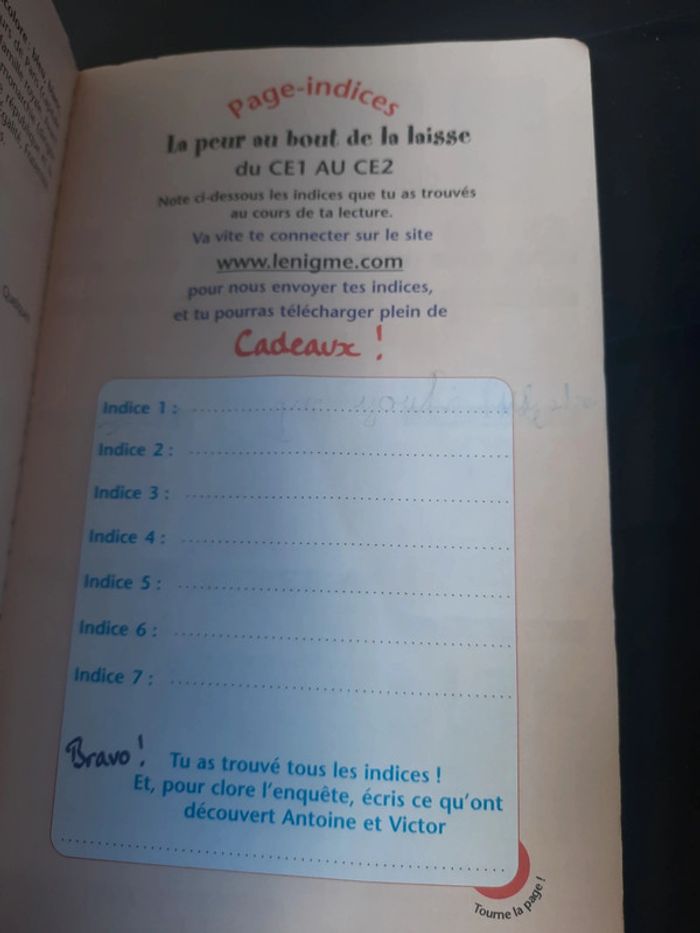 Page-indices
La peur au bout de la laisse
du CE1 AU CE2
Note ci-dessous les indices que tu as trouvés
au cours de ta lecture.
Va vite te connecter sur le site
www.lenigme.com
pour nous envoyer tes indices,
et tu pourras télécharger plein de
Cadeaux !
Indice 1 :
Indice 2 :
Indice 3 :
Indice 4 :
Indice 5 :
Indice 6 :
Indice 7 :
Bravo ! Tu as trouvé tous les indices !
Et, pour clore l'enquête, écris ce qu'ont
découvert Antoine et Victor
Tourne la page !